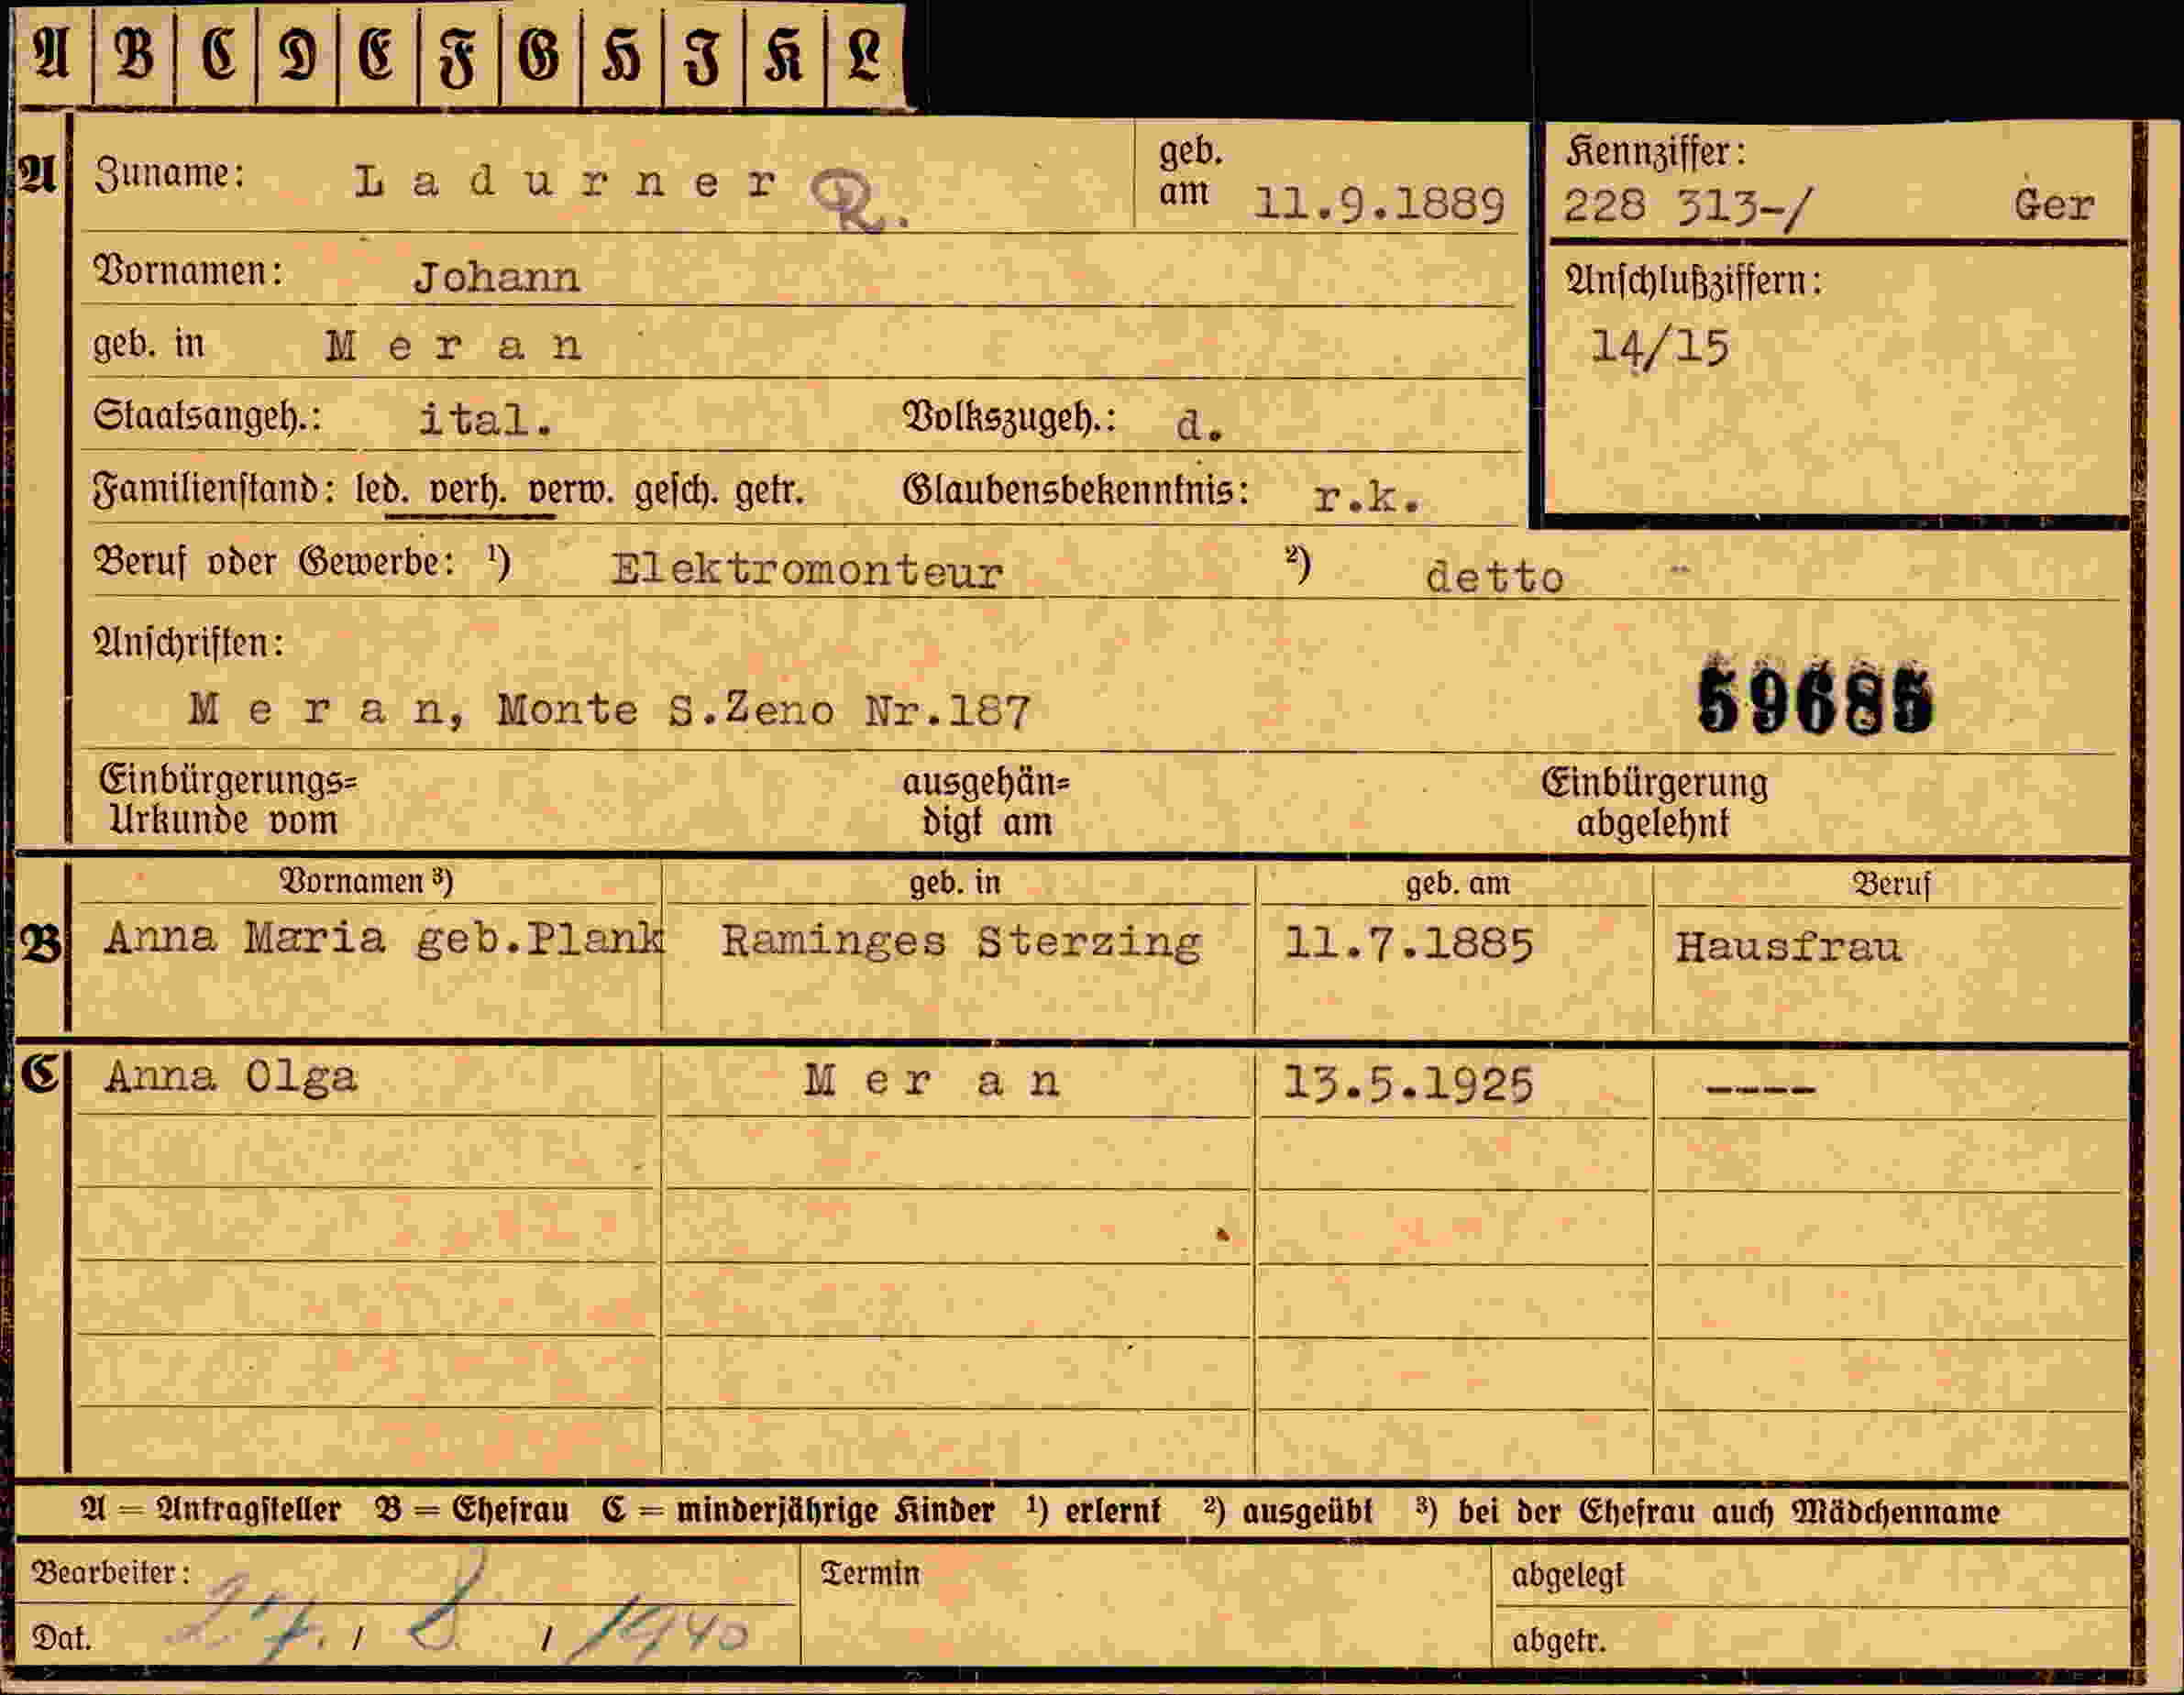 A B C D E F G H I K L
A Zuname: Ladurner R. geb. am 11.9.1889 Kennziffer: 228 313-/ Ger
Vornamen: Johann Anschlußziffern:
geb. in Meran 14/15
Staatsangeh.: ital. Volkszugeh.: d.
Familienstand: led. verh. verw. gesch. getr. Glaubensbekenntnis: r.k.
Beruf oder Gewerbe: ¹) Elektromonteur ²) detto
Anschriften:
Meran, Monte S.Zeno Nr.187 59685
Einbürgerungs= ausgehän= Einbürgerung
Urkunde vom digt am abgelehnt
Vornamen ³) geb. in geb. am Beruf
B Anna Maria geb.Plank Raminges Sterzing 11.7.1885 Hausfrau
C Anna Olga Meran 13.5.1925 ----
A = Antragsteller B = Ehefrau C = minderjährige Kinder ¹) erlernt ²) ausgeübt ³) bei der Ehefrau auch Mädchenname
Bearbeiter: Termin abgelegt
Dat. 27. / 8. / 1940 abgetr.